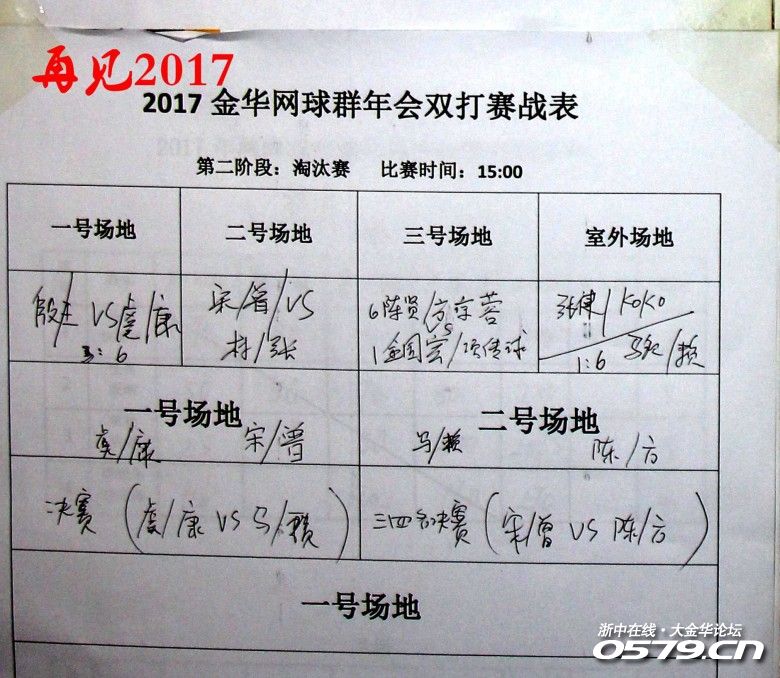 再见2017
2017 金华网球群年会双打赛战表
第二阶段：淘汰赛 比赛时间：15:00
一号场地 二号场地 三号场地 室外场地
段/王 VS 虞/康
3:6
宋/曾/VS
林/张
6 陈贤/方京蓉
VS
1 金国宏/项传球
张健/KOKO
1:6 马超/赖
一号场地 二号场地
虞/康 宋/曾 马/赖 陈/方
决赛（虞/康 VS 马/赖） 三四名决赛（宋/曾 VS 陈/方）
一号场地
浙中在线·大金华论坛
0579.CN